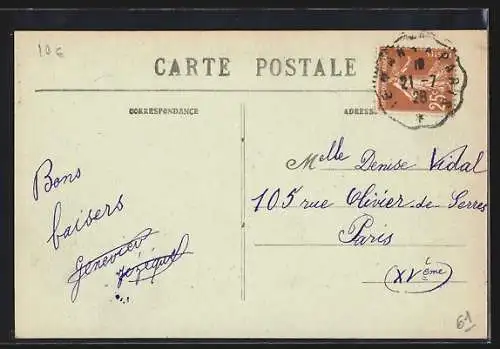 10€
CARTE POSTALE
CORRESPONDANCE
ADRESSE
21-7
25
Mlle Denise Vidal
105 rue Olivier de Serres
Paris
(XVème)
Bons
baisers
Geneviève
61